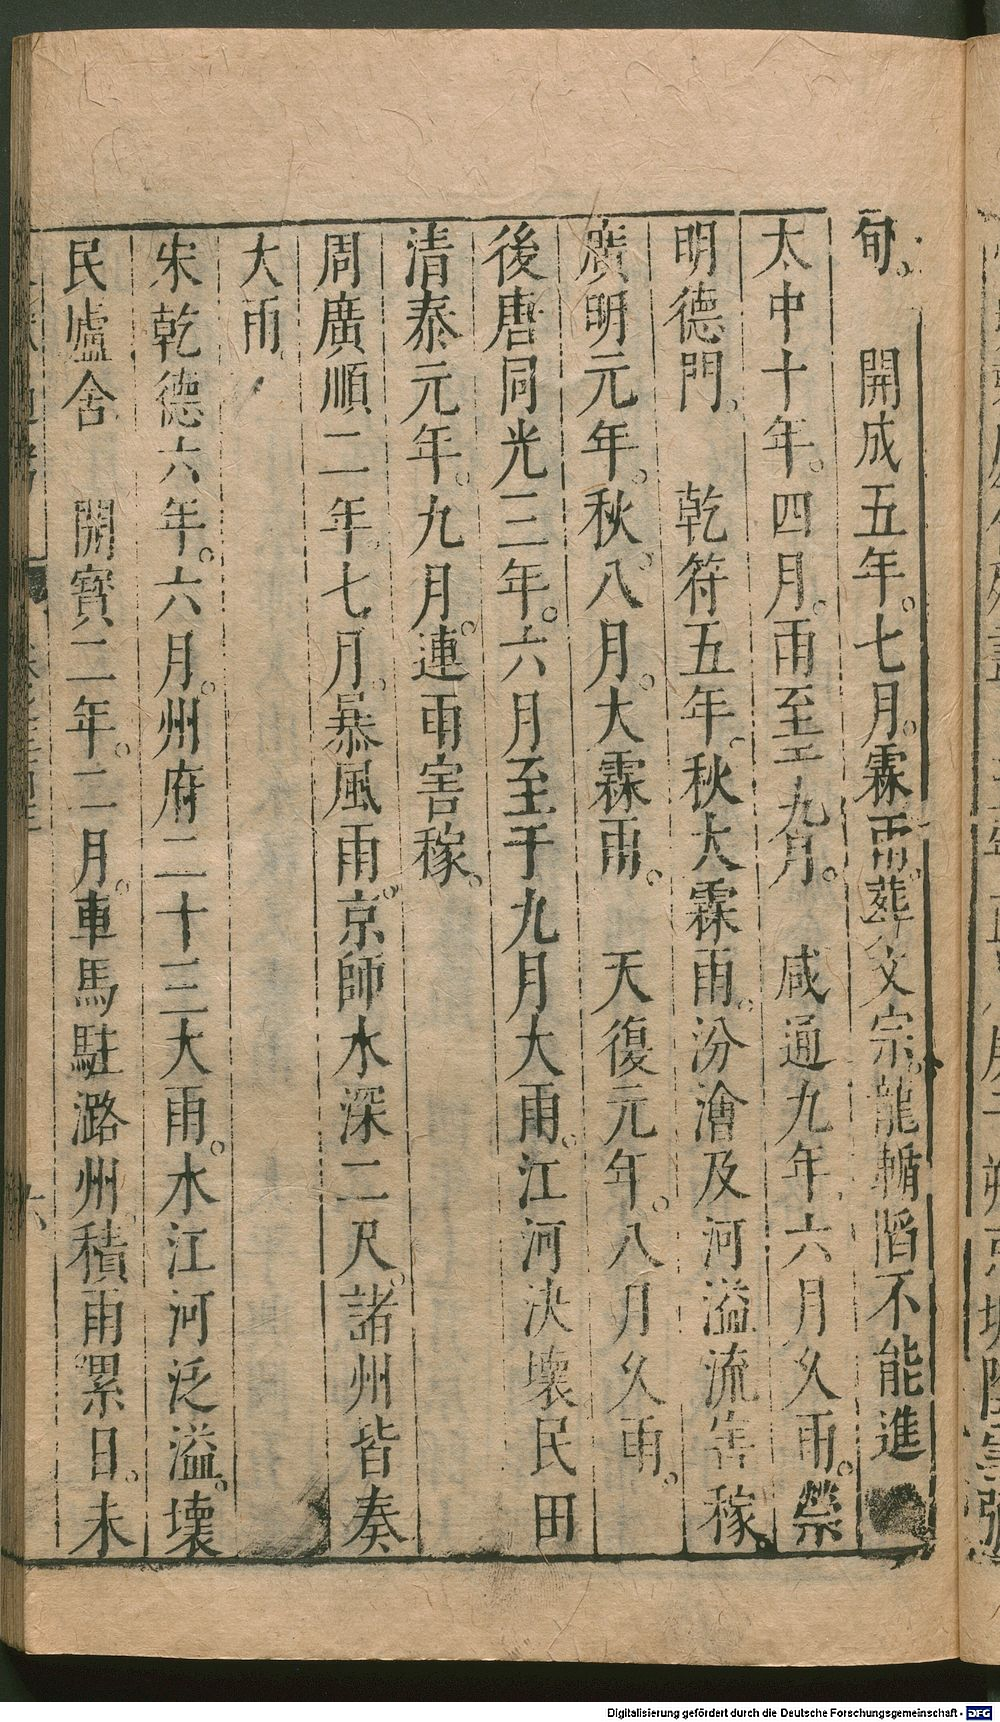 旬。　開成五年。七月。霖雨。葬文宗。龍輴陷不能進
太中十年。四月。雨至于九月。　咸通九年六月久雨。禜
明德門。　乾符五年。秋大霖雨。汾澮及河溢流害稼。
廣明元年。秋。八月。大霖雨。　天復元年。八月久雨。
後唐同光三年。六月至于九月大雨。江河決壞民田
清泰元年。九月。連雨害稼。
周廣順二年。七月。暴風雨。京師水深二尺。諸州皆奏
大雨。
宋乾德六年。六月。州府二十三大雨。水江河泛溢。壞
民廬舍　開寶二年。二月。車馬駐潞州。積雨累日。未
六
Digitalisierung gefördert durch die Deutsche Forschungsgemeinschaft - DFG